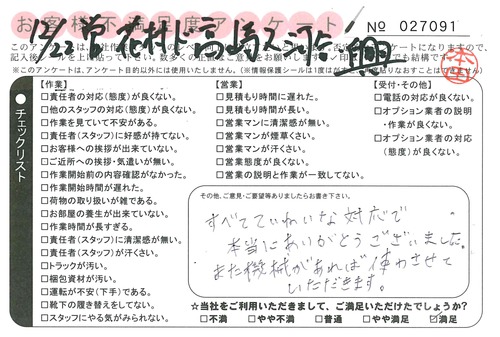 お客様不満足度アンケート
No 027091
12/22 営
※このアンケートは、アンケート目的以外には使用しません。(※情報保護シールは1度はがすと
チェックリスト
【作業】
□責任者の対応(態度)が良くない。
□他のスタッフの対応(態度)が良くない。
□作業を見ていて不安がある。
□責任者(スタッフ)に好感が持てない。
□お客様への挨拶が出来ていない。
□ご近所への挨拶・気遣いが無い。
□作業開始前の内容確認がなかった。
□作業開始時間が遅れた。
□荷物の取り扱いが雑である。
□お部屋の養生が出来ていない。
□作業時間が長すぎる。
□責任者(スタッフ)に清潔感が無い。
□責任者(スタッフ)が汗くさい。
□トラックが汚い。
□梱包資材が汚い。
□運転が不安(下手)である。
□靴下の履き替えをしてない。
□スタッフにやる気がみられない。
【営業】
□見積もり時間に遅れた。
□見積もり時間が長い。
□営業マンに清潔感が無い。
□営業マンが煙草くさい。
□営業マンが汗くさい。
□営業態度が良くない。
□営業の説明と作業が一致してない。
【受付・その他】
□電話の対応が良くない。
□オプション業者の説明
・作業が良くない。
□オプション業者の対応
(態度)が良くない。
その他、ご意見・ご要望等ありましたらお書き下さい。
すべてていねいな対応で
本当にありがとうございました。
また機械があれば使わさせて
いただきます。
☆当社をご利用いただきまして、ご満足いただけたでしょうか?
□不満 □やや不満 □普通 □やや満足 ☑満足